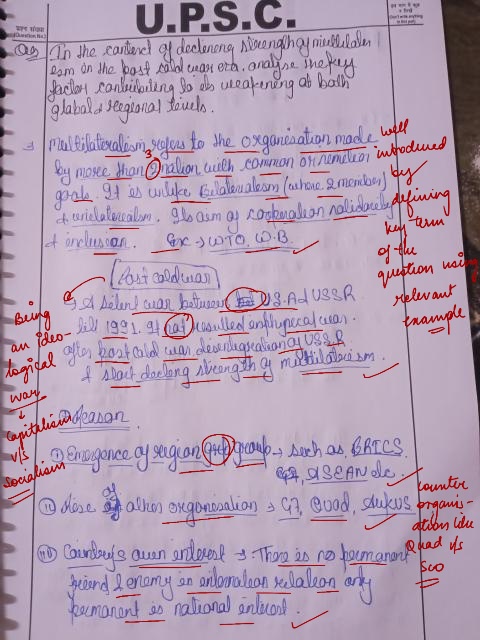 U.P.S.C.
(Question No.)
(Don't write anything in this part)
Q.
In the context of declening strength of multilater
ism in the post cold war era, analyse the key
factor contributing to its weakening at both
global & regional levels.
→ Multilateralism refers to the organisation made
by more than 2 nation with common or
3
goals. It is unlike Bilateralism (where 2 member)
& unilateralism. Its aim of cooperation solidarity
& inclusion. Ex → WTO, W.B.
well
introduced
by
defining
key term
of the
question using
relevant
example
Post cold war
→ A silent war between U.S.A & USSR
till 1991. It not resulted in war.
after post cold war disentegration of USSR
& start declening strength of multilateralism
Being
an ideo-
logical
war
↓
Capitalism
v/s
socialism
Reason
(i) Emergence of region group → such as, BRICS,
G7, ASEAN etc.
(ii) Rise of other organisation → G7, Quad, Aukus
counter
organis-
ation like
Quad v/s
SCO
(iii) Country's own interest → There is no permanent
friend & enemy in relation only
permanent is national interest.